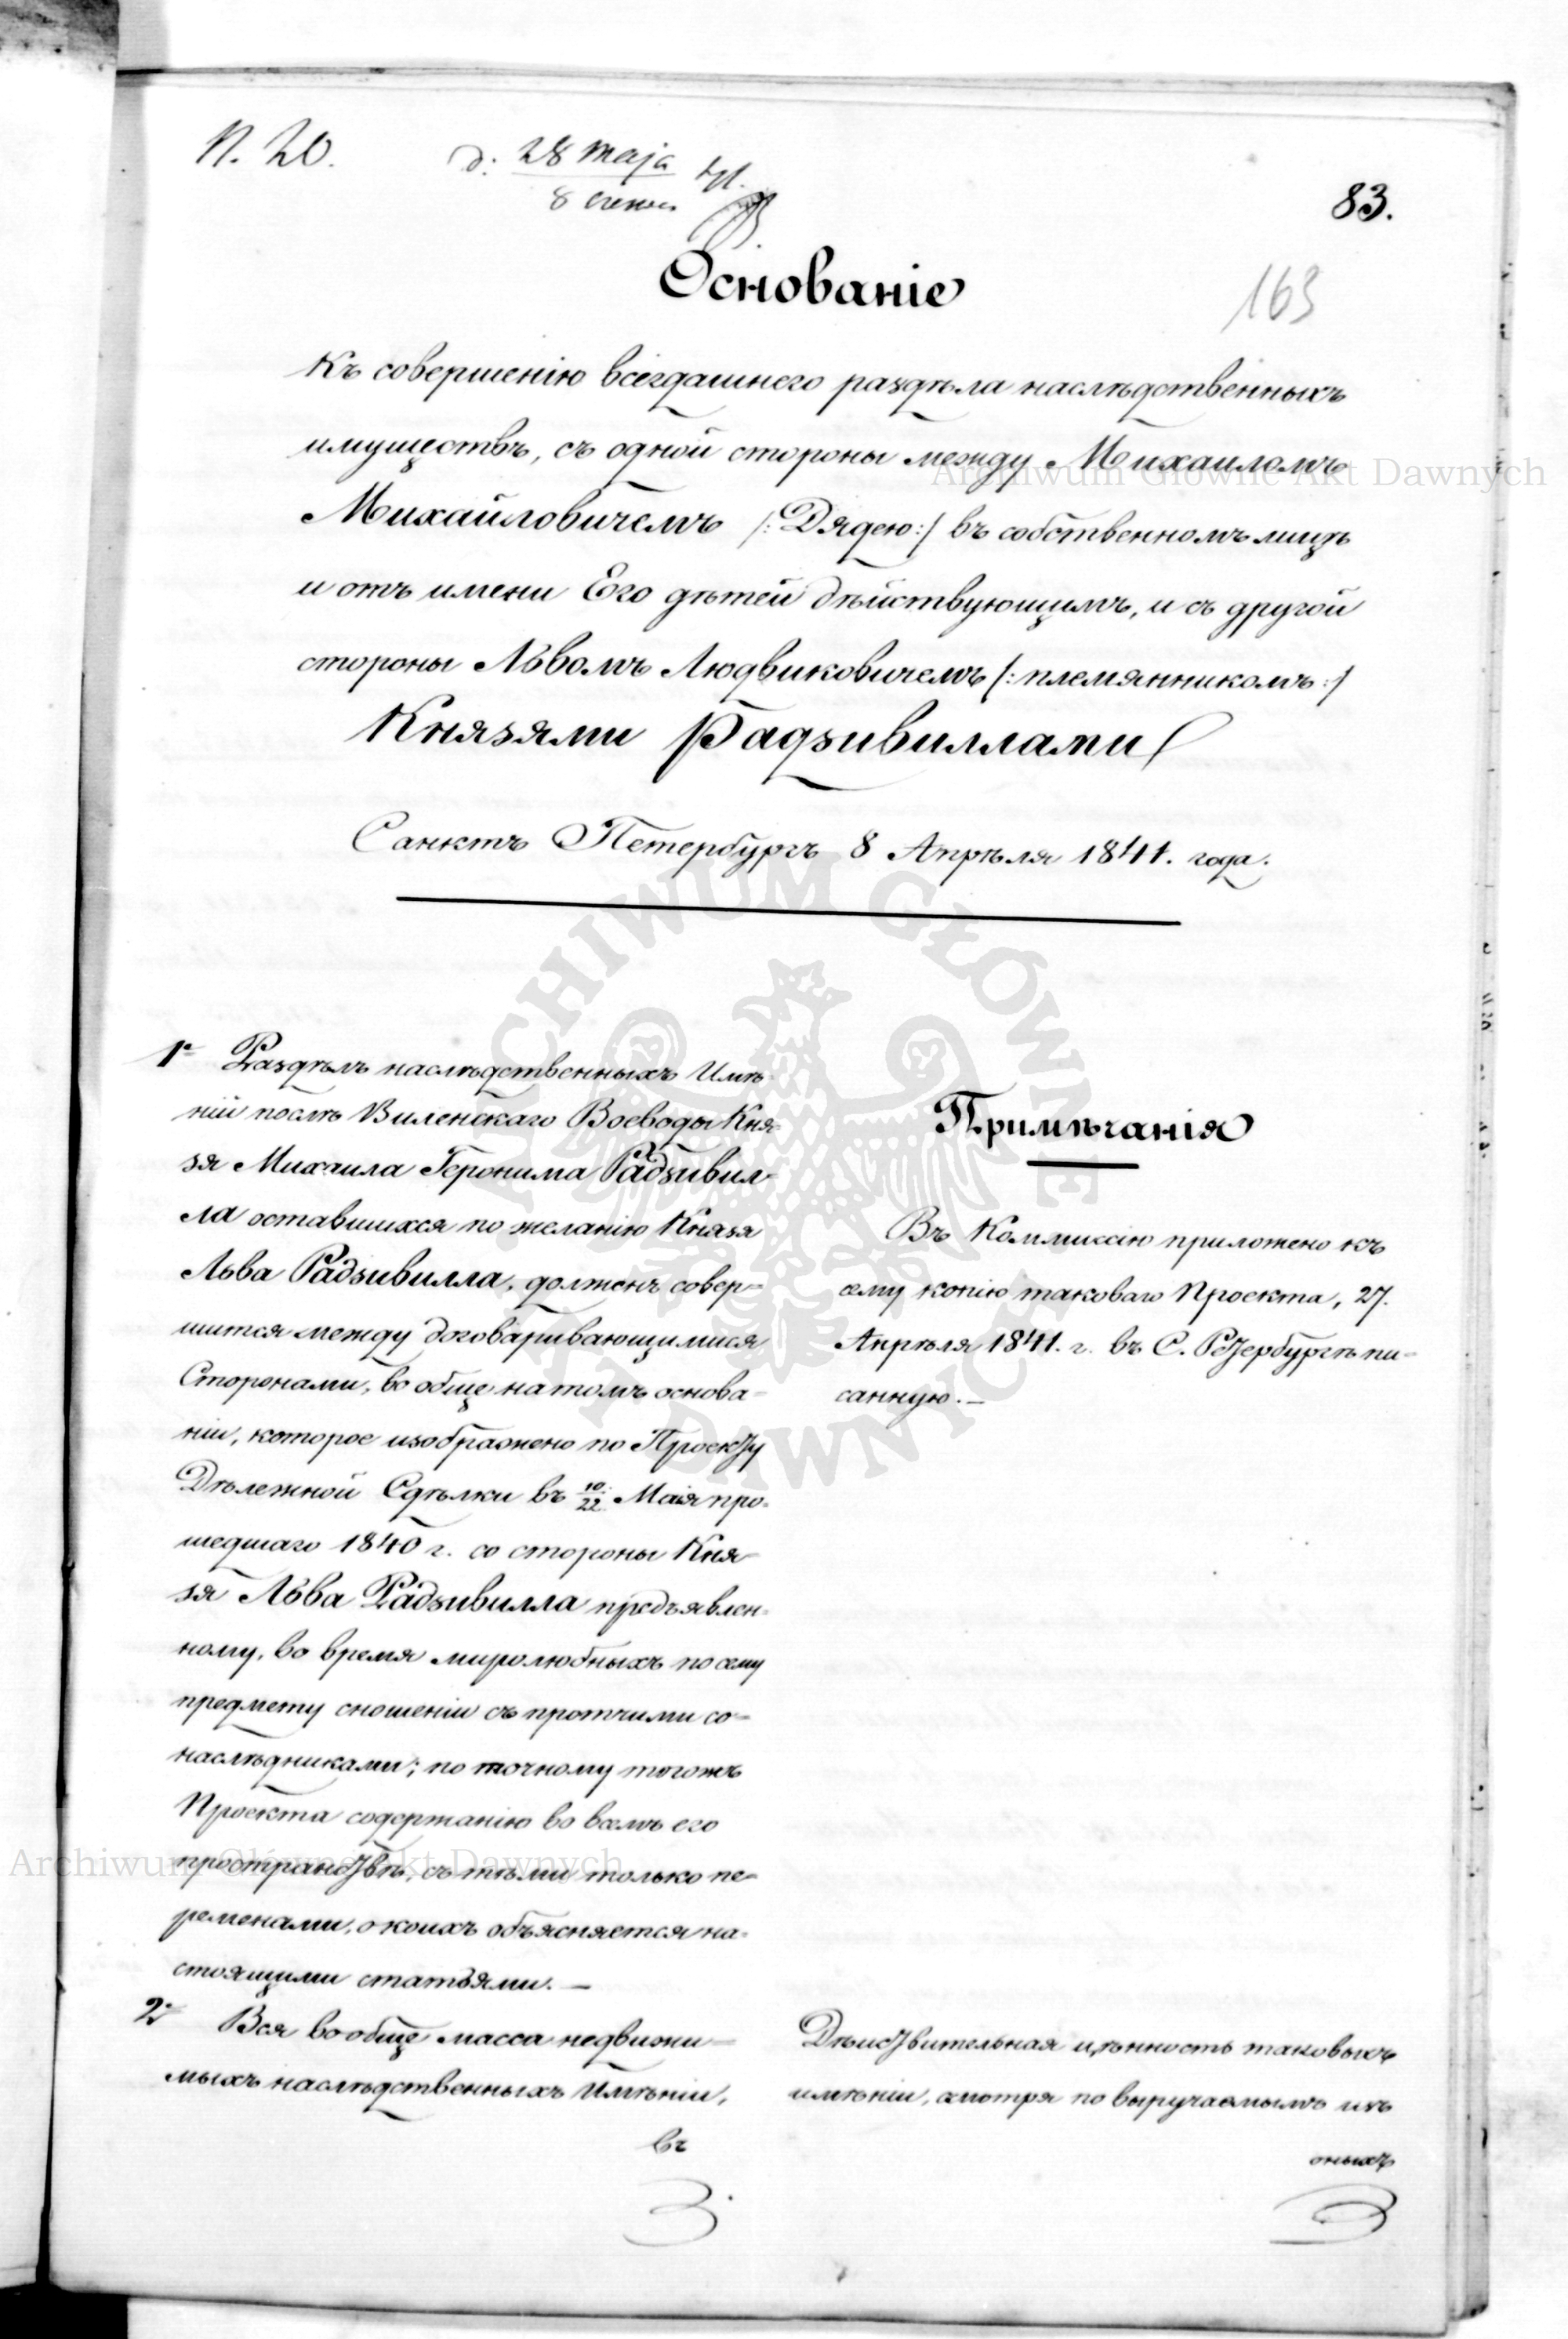 N. 20.
d: 28 maja
8 czerw.
83.
163
Основаніе
Къ совершенію всегдашнего раздѣла наслѣдственныхъ
имуществъ, съ одной стороны между Михаиломъ
Михайловичемъ /: Дядею :/ въ собственномъ лицѣ
и отъ имени Его дѣтей дѣйствующимъ, и съ другой
стороны Львомъ Людвиковичемъ /: племянникомъ :/
Князями Радзивиллами
Санктъ Петербургъ 8 Апрѣля 1841. года.
1е Раздѣлъ наслѣдственныхъ Имѣ-
ній послѣ Виленскаго Воеводы Кня-
зя Михаила Геронима Радзивил-
ла оставшихся по желанію Князя
Льва Радзивилла, долженъ совер-
шится между договаривающимися
Сторонами, во обще на томъ основа-
ніи, которое изображено по Проекту
Дѣлежной Сдѣлки въ 10/22 Маія про-
шедшаго 1840 г. со стороны Кня-
зя Льва Радзивилла предъявлен-
ному, во время миролюбныхъ по сему
предмету сношеніи съ протчими со-
наслѣдниками; по точному тогожъ
Проекта содержанію во всемъ его
пространствѣ, съ тѣми только пе-
ременами, о коихъ объясняется на-
стоящими статьями. —
2е Вся вообще масса недвижи-
мыхъ наслѣдственныхъ Имѣніи,
въ
Примѣчанія
Въ Коммиссію приложено къ
сему копію таковаго Проекта, 27.
Апрѣля 1841. г. въ С. Петербургѣ пи-
санную. —
Дѣиствительная цѣнность таковыхъ
имѣніи, смотря по выручаемымъ изъ
оныхъ
Archiwum Główne Akt Dawnych
Archiwum Główne Akt Dawnych
ARCHIWUM GŁÓWNE AKT DAWNYCH